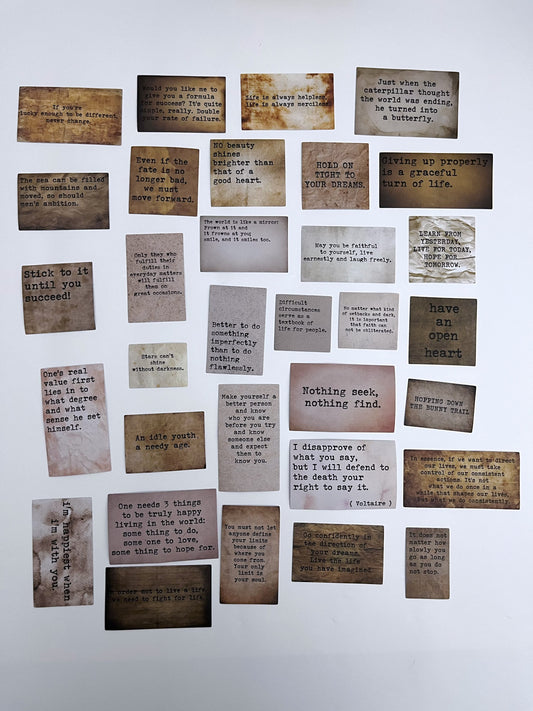 If you're
lucky enough to be different,
never change.
Would you like me to
give you a formula
for success? It's quite
simple, really. Double
your rate of failure.
Life is always helpless,
life is always merciless.
Just when the
caterpillar thought
the world was ending,
he turned into
a butterfly.
The sea can be filled
with mountains and
moved, so should
men's ambition.
Even if the
fate is no
longer bad,
we must
move forward.
NO beauty
shines
brighter than
that of a
good heart.
HOLD ON
TIGHT TO
YOUR DREAMS.
Giving up properly
is a graceful
turn of life.
Stick to it
until you
succeed!
Only they who
fulfill their
duties in
everyday matters
will fulfill
them on
great occasions.
The world is like a mirror:
Frown at it and
it frowns at you;
smile, and it smiles too.
May you be faithful
to yourself, live
earnestly and laugh freely.
LEARN FROM
YESTERDAY,
LIVE FOR TODAY,
HOPE FOR
TOMORROW.
Stars can't
shine
without darkness.
Better to do
something
imperfectly
than to do
nothing
flawlessly.
Difficult
circumstances
serve as a
textbook of
life for people.
No matter what kind
of setbacks and dark,
it is important
that faith can
not be obliterated.
have
an
open
heart
One's real
value first
lies in to
what degree
and what
sense he set
himself.
An idle youth,
a needy age.
Make yourself a
better person
and know
who you
are before
you try
and know
someone else
and expect
them to
know you.
Nothing seek,
nothing find.
HOPPING DOWN
THE BUNNY TRAIL
I disapprove of
what you say,
but I will defend to
the death your
right to say it.
( Voltaire )
In essence, if we want to direct
our lives, we must take
control of our consistent
actions. It's not
what we do once in a
while that shapes our lives,
but what we do consistently.
i'm happiest when
i'm with you.
One needs 3 things
to be truly happy
living in the world:
some thing to do,
some one to love,
some thing to hope for.
You must not let
anyone define
your limits
because of
where you
come from.
Your only
limit is
your soul.
Go confidently in
the direction of
your dreams.
Live the life
you have imagined.
It does not
matter how
slowly you
go as long
as you do
not stop.
In order not to live a life,
we need to fight for life.